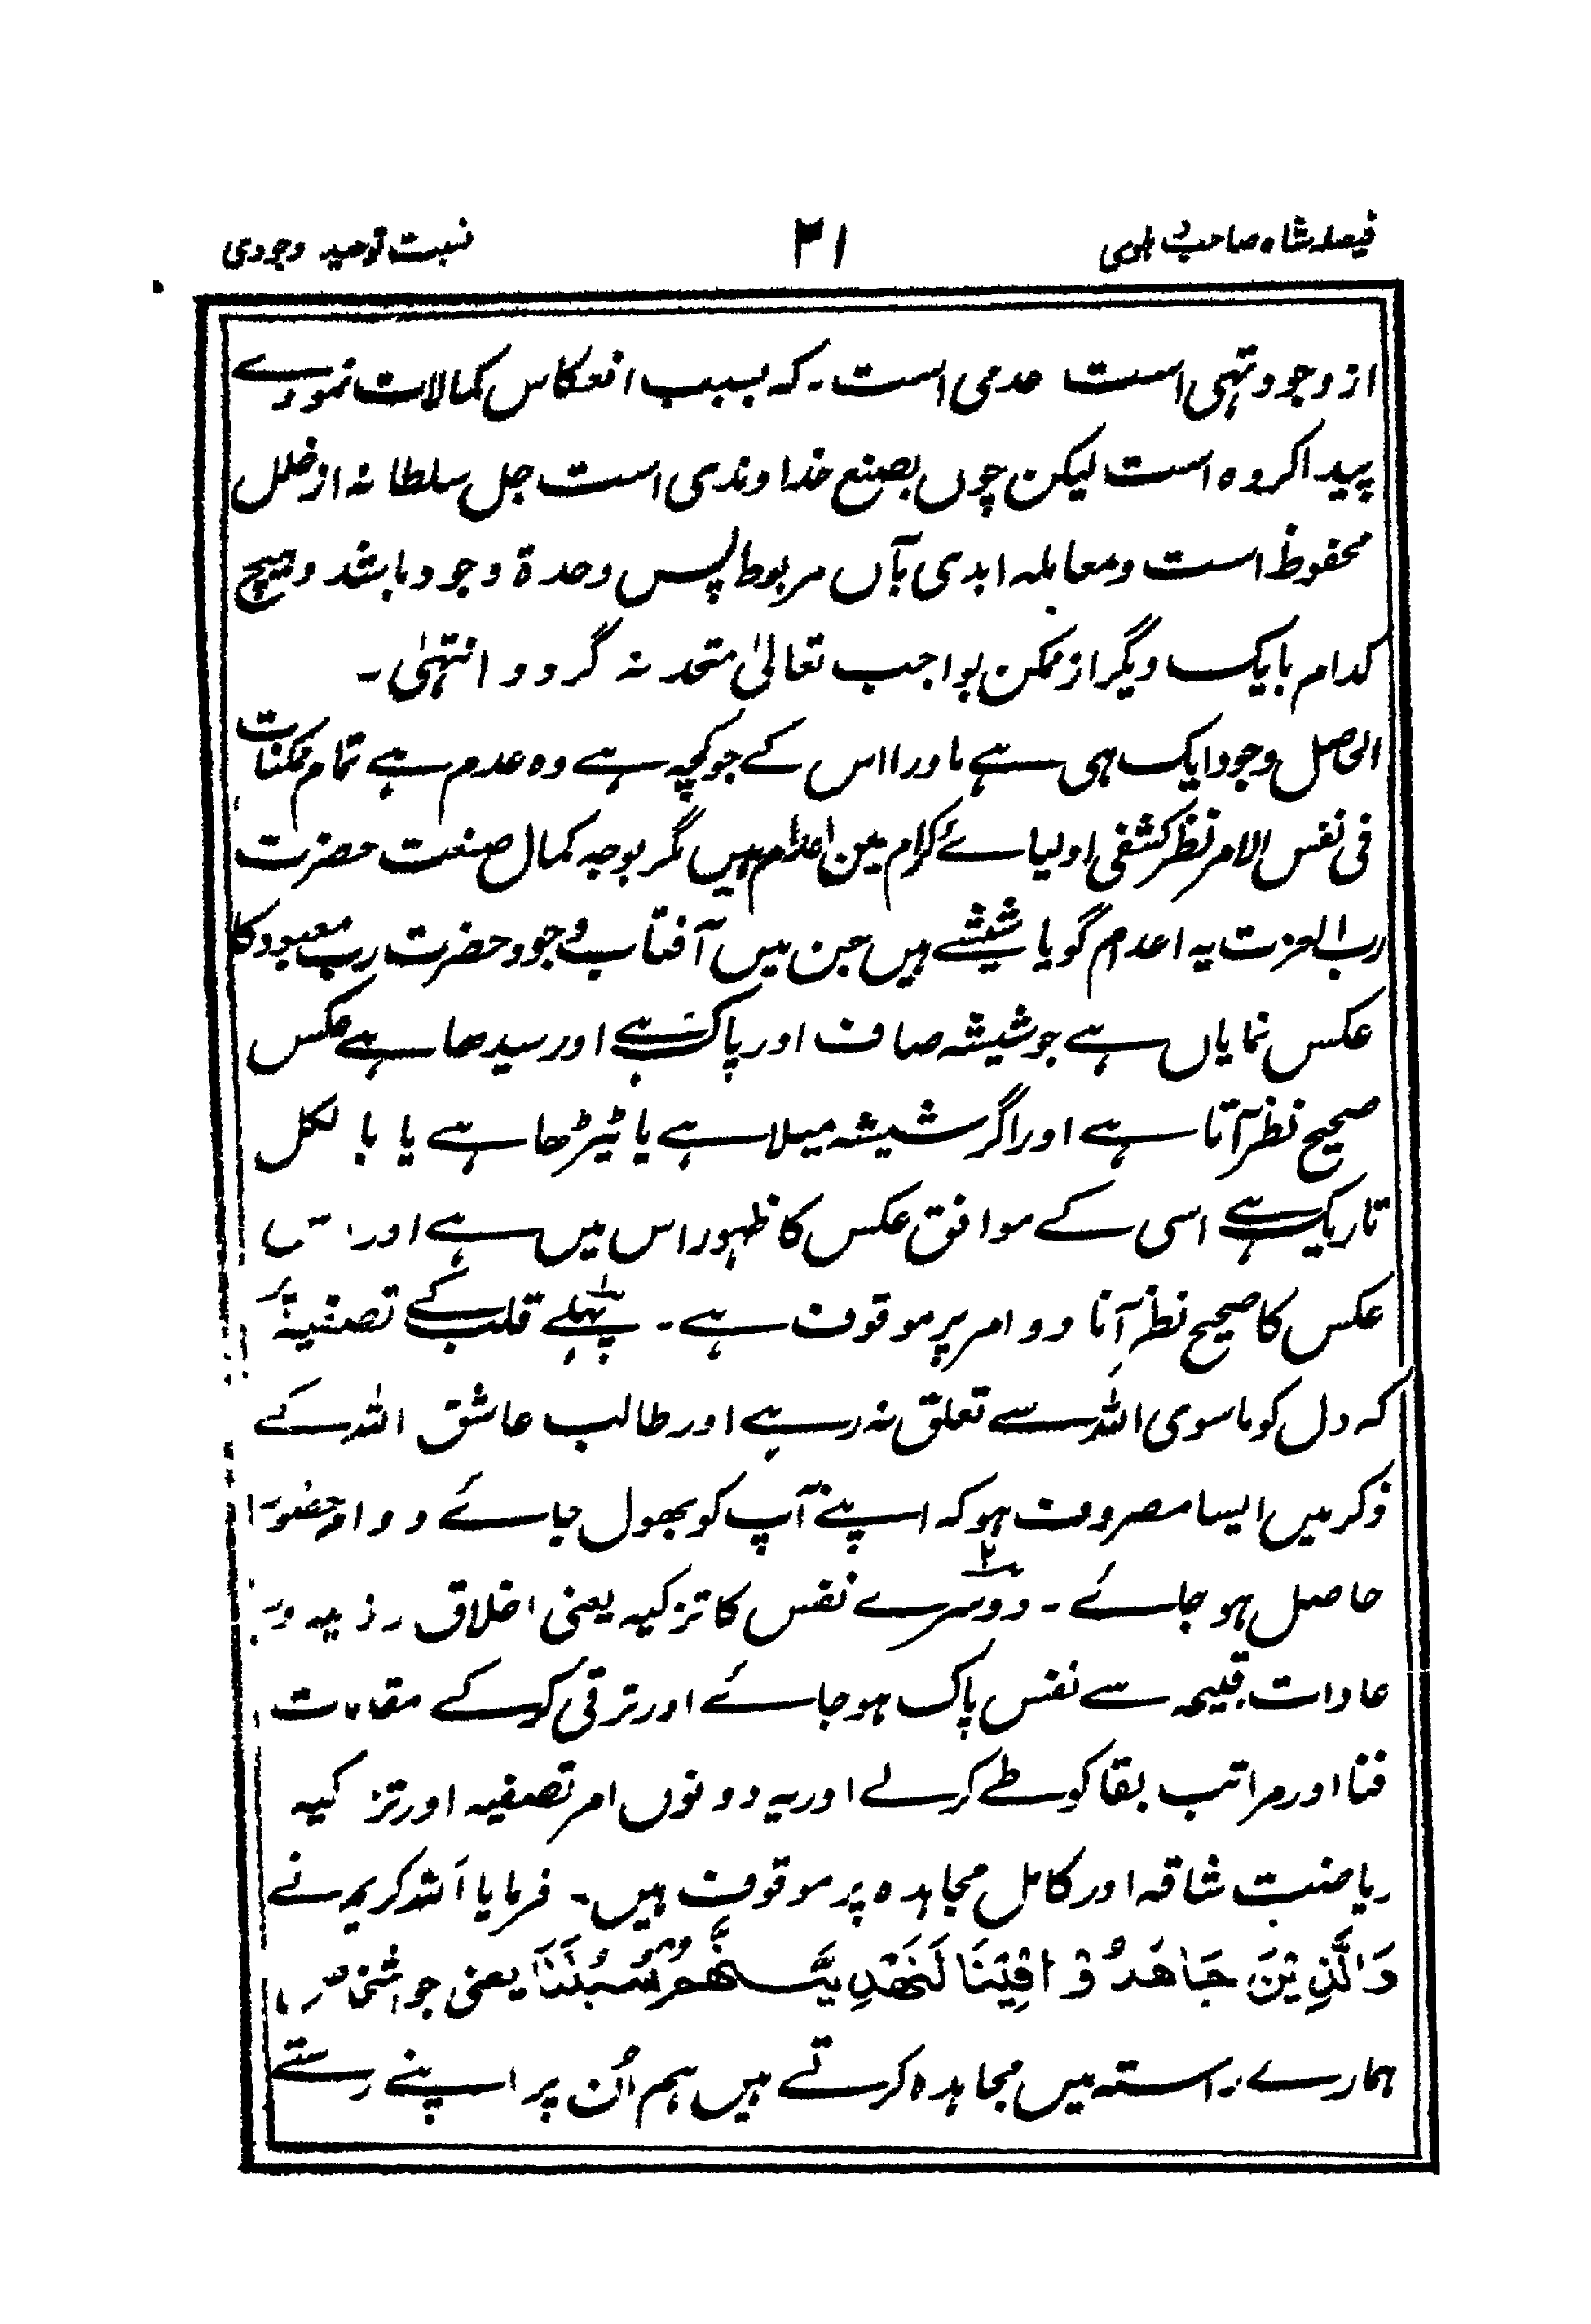 فیصلہ شاہ صاحب دہلوی ۲۱ نسبت توحید وجودی
از وجود تہی است عدمی است ۔ کہ بسبب انعکاس کمالات نمودے
پیدا کردہ است لیکن چوں بصنع خداوندی است جل سلطانہ از خلل
محفوظ است و معاملہ ابدی بآں مربوط پس وحدۃ وجود باشد و ہیچ
کدام بایک دیگر از ممکن بواجب تعالیٰ متحد نہ گردد انتہیٰ ۔
الحاصل وجود ایک ہی ہے ماورا اس کے جو کچھ ہے وہ عدم ہے تمام ممکنات
فی نفس الامر نظر کشفی اولیائے کرام میں اعدام ہیں مگر بوجہ کمال صنعت حضرت
رب العزت یہ اعدام گویا شیشے ہیں جن میں آفتاب وجود حضرت رب معبود کا
عکس نمایاں ہے جو شیشہ صاف اور پاک ہے اور سیدھا ہے عکس
صحیح نظر آتا ہے اور اگر شیشہ میلا ہے یا ٹیڑھا ہے یا بالکل
تاریک ہے اسی کے موافق عکس کا ظہور اس میں ہے اور اس
عکس کا صحیح نظر آنا دو امر پر موقوف ہے ۔ پہلے قلب کے تصفیہ پر
کہ دل کو ماسوی اللہ سے تعلق نہ رہے اور طالب عاشق اللہ کے
ذکر میں ایسا مصروف ہو کہ اپنے آپ کو بھول جائے دوام حضور
حاصل ہو جائے ۔ دوسرے نفس کا تزکیہ یعنی اخلاق رذیلہ و
عادات قبیحہ سے نفس پاک ہو جائے اور ترقی کرکے مقامات
فنا اور مراتب بقا کو طے کرلے اور یہ دونوں امر تصفیہ اور تزکیہ
ریاضت شاقہ اور کامل مجاہدہ پر موقوف ہیں ۔ فرمایا اللہ کریم نے
وَالَّذِیْنَ جَاهَدُوْا فِیْنَا لَنَهْدِیَنَّهُمْ سُبُلَنَا یعنی جو اشخاص
ہمارے راستہ میں مجاہدہ کرتے ہیں ہم اُن پر اپنے رستے